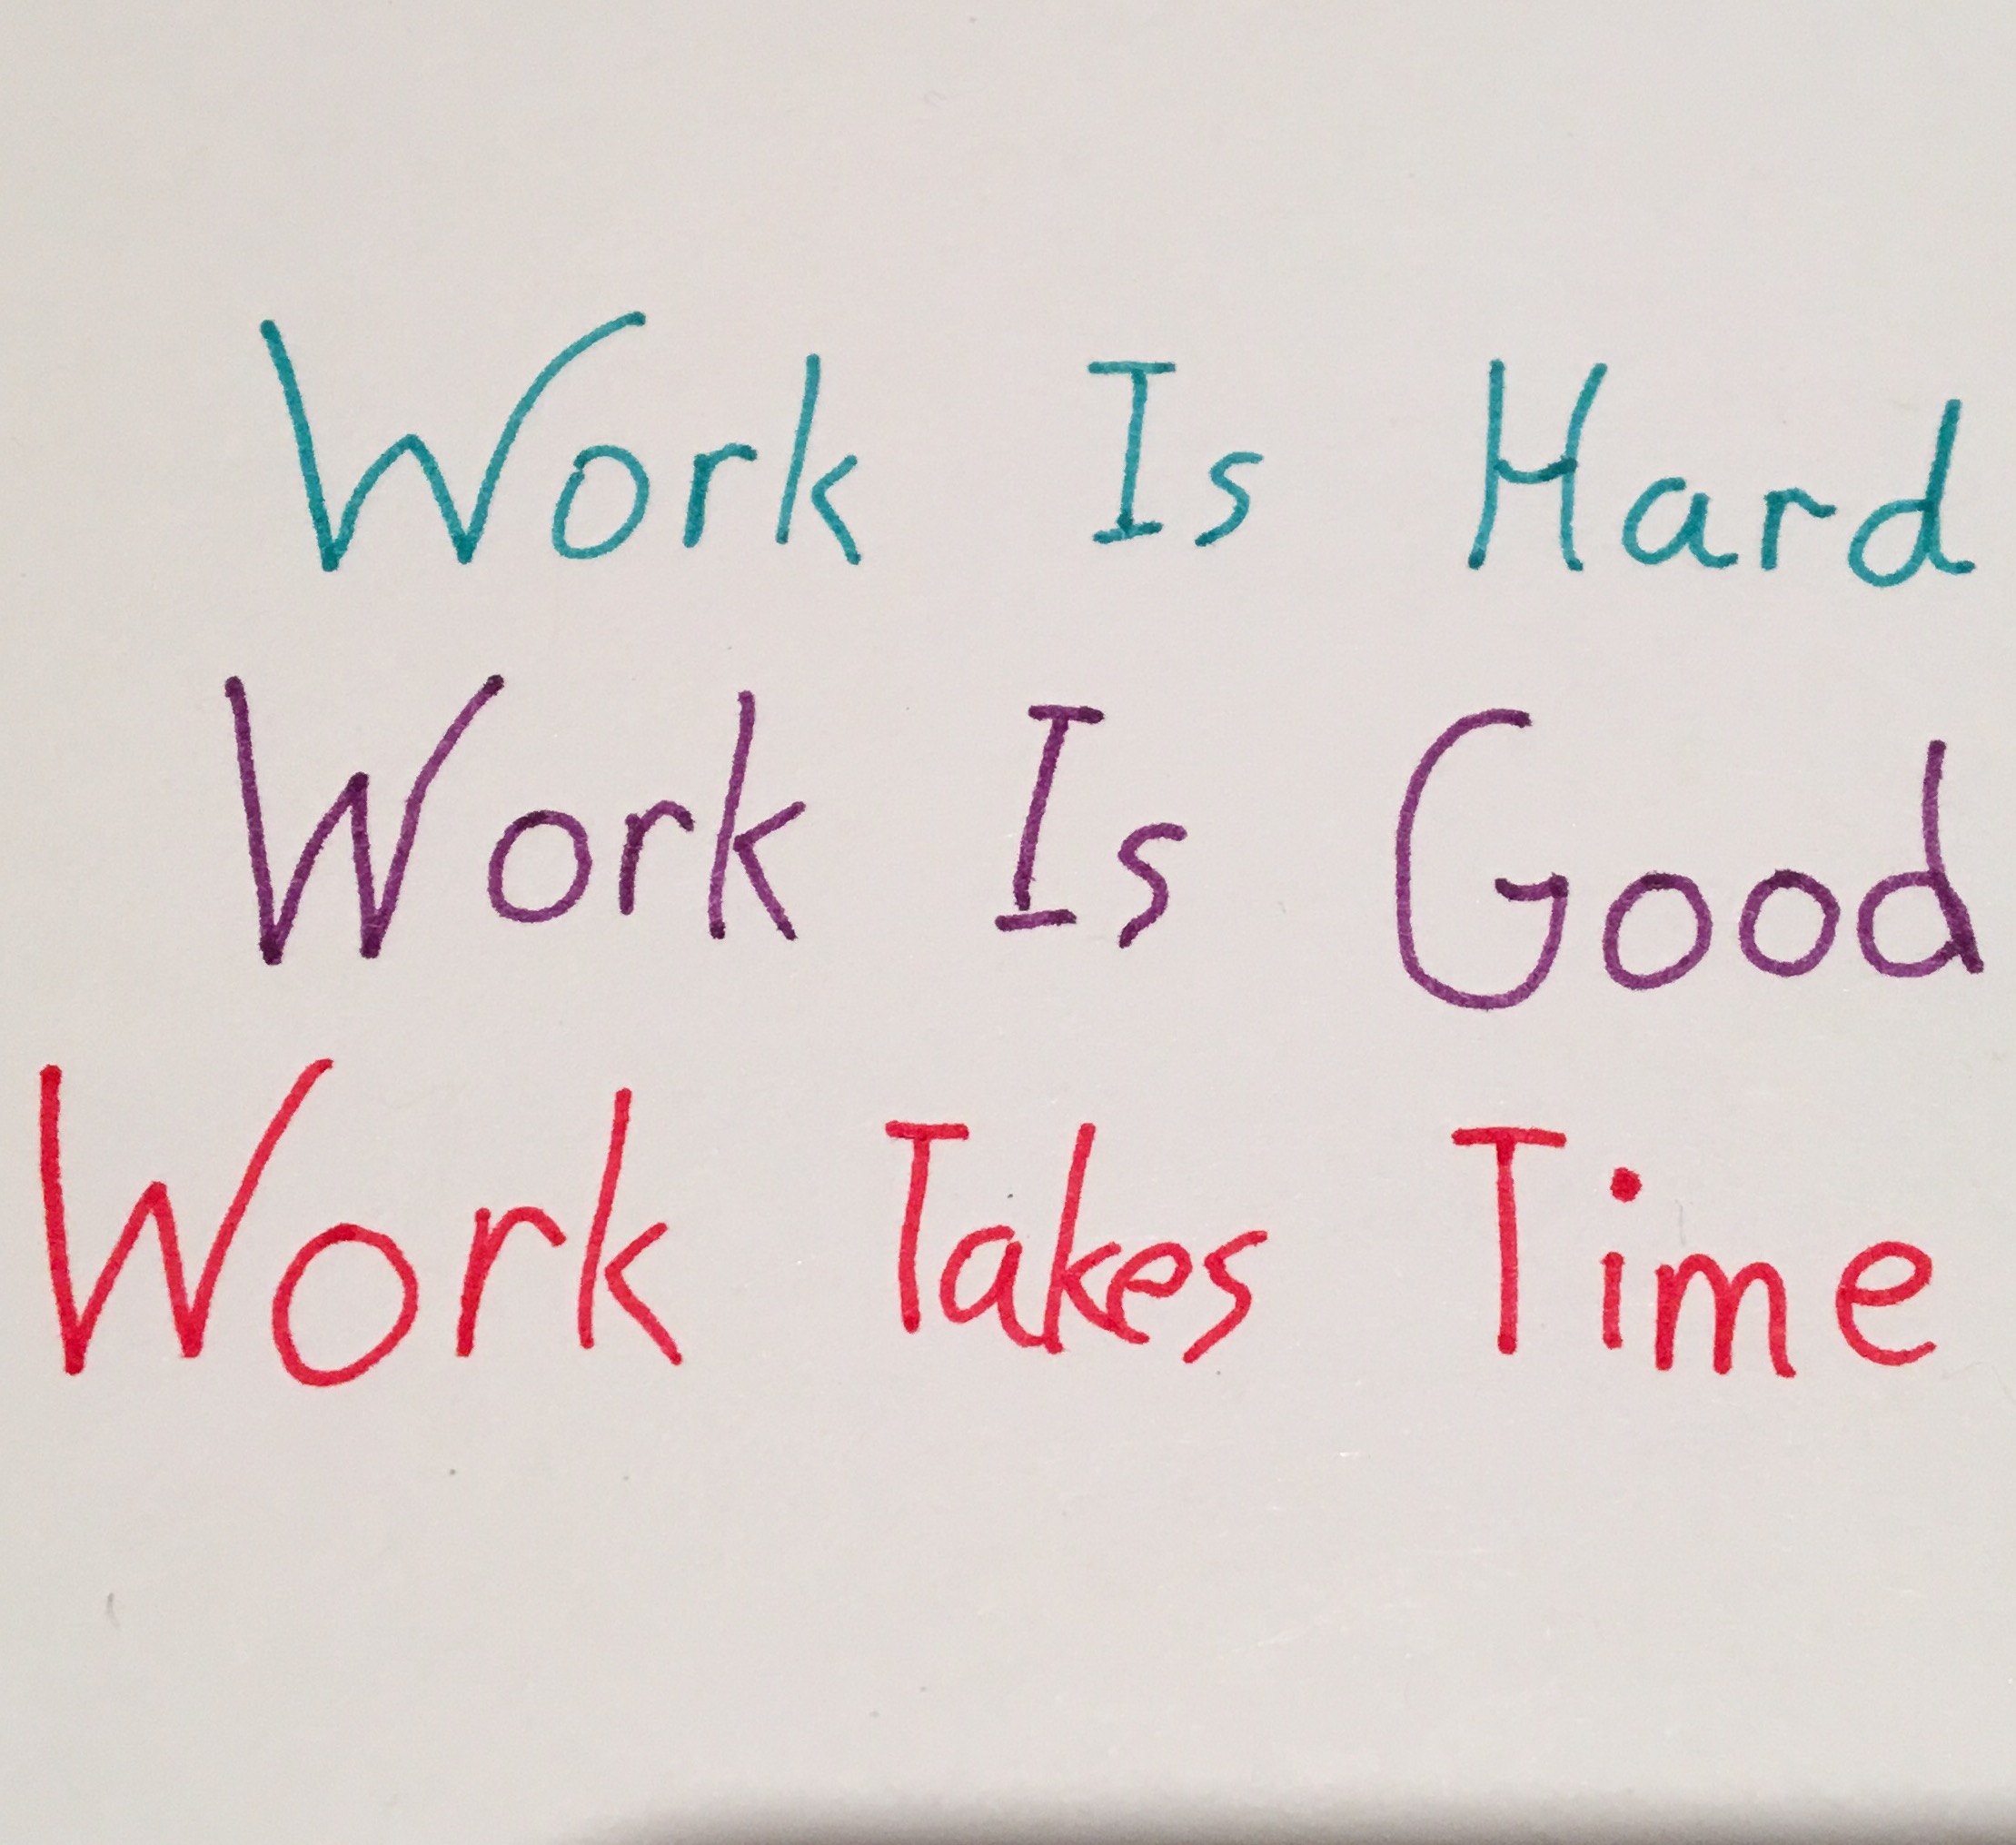 Work Is Hard
Work Is Good
Work Takes Time